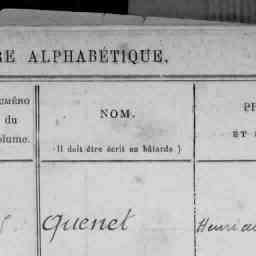 RE ALPHABÉTIQUE,
UMÉRO
du
olume.
NOM.
(Il doit être écrit en bâtarde)
PR
ET
Quenet
Henri